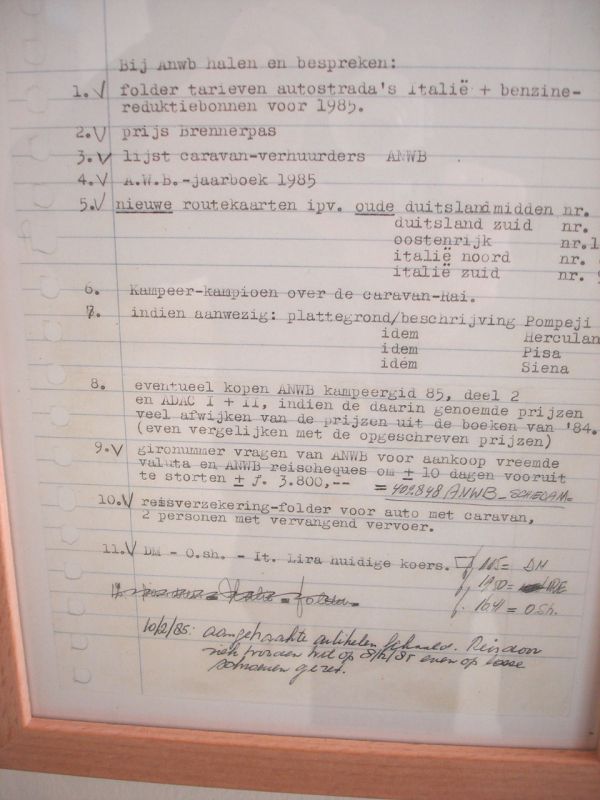 Bij Anwb halen en bespreken:
1. √ folder tarieven autostrada's Italië + benzine-
reduktiebonnen voor 1985.
2. √ prijs Brennerpas
3. √ lijst caravan-verhuurders ANWB
4. √ A.W.B.-jaarboek 1985
5. √ nieuwe routekaarten ipv. oude duitsland midden nr.
duitsland zuid nr.
oostenrijk nr.1
italië noord nr.
italië zuid nr.
6. Kampeer-kampioen over de caravan-Rai.
7. indien aanwezig: plattegrond/beschrijving Pompeji
idem Herculan
idem Pisa
idem Siena
8. eventueel kopen ANWB kampeergid 85, deel 2
en ADAC I + II, indien de daarin genoemde prijzen
veel afwijken van de prijzen uit de boeken van '84.
(even vergelijken met de opgeschreven prijzen)
9. √ gironummer vragen van ANWB voor aankoop vreemde
valuta en ANWB reischeques om ± 10 dagen vooruit
te storten ± f. 3.800,-- = 409848/ANWB
10. √ reisverzekering-folder voor auto met caravan,
2 personen met vervangend vervoer.
11. √ DM - O.sh. - It. Lira huidige koers. = DM
= LIRE
= O.Sh.
10/2/85: aangehaakte artikelen gehaald.
op 8/2/85 even op losse
schoenen gezet.